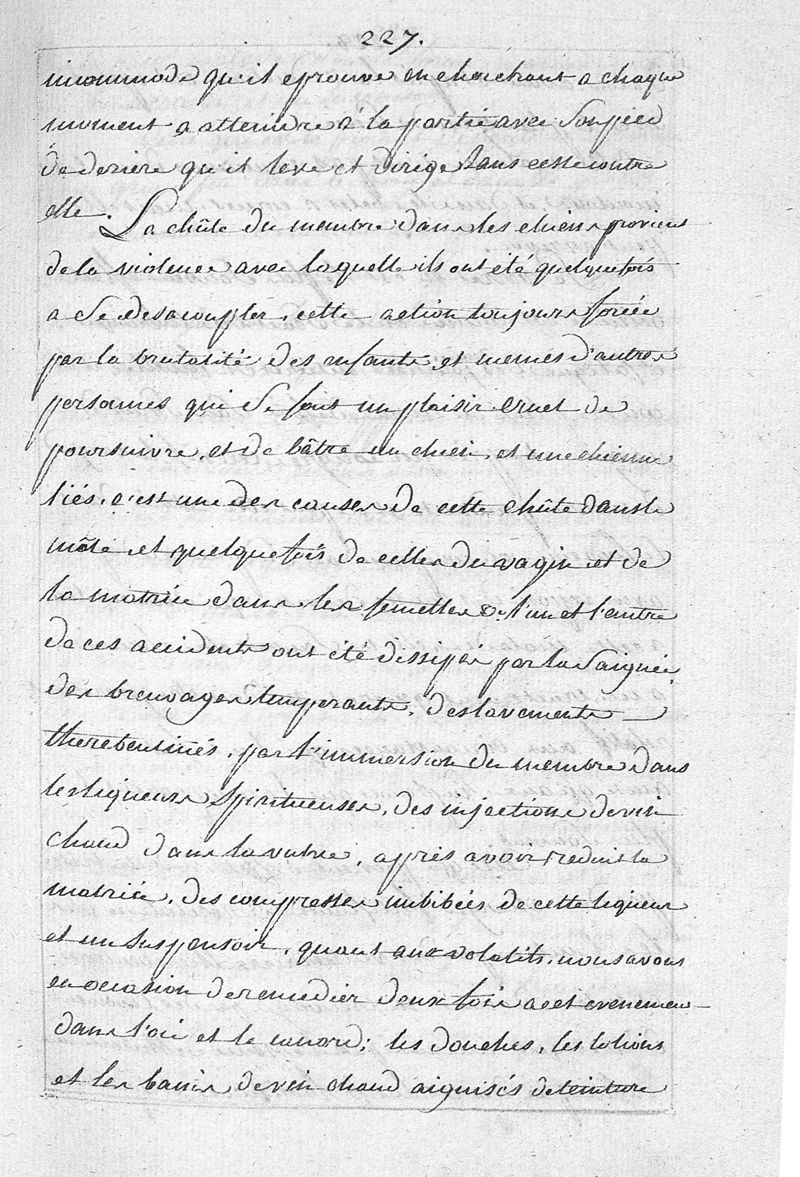 227.
incommode qu'il eprouve en cherchant a chaque
moment a atteindre à la partie avec son pied
de deriere qu'il leve et dirige sans cesse contre
elle. La chûte du membre dans les chiens provient
de la violence avec laquelle ils ont été quelquefois
a se desacoupler, cette action toujours forcée
par la brutalité des enfants, et memes d'autres
personnes qui se font un plaisir cruel de
poursuivre, et de bâtre un chien, et une chienne
liés, c'est une des causes de cette chûte dans le
mâle et quelquefois de celles du vagin et de
la matrice dans les femelles &c. l'un et l'autre
de ces accidents ont été dissipés par la saignée,
des breuvages temperants, des lavements
therebentinés, par l'immersion du membre dans
les liqueurs spiritueuses, des injections de vin
chaud dans la vulve, après avoir reduit la
matrice, des compresses imbibées de cette liqueur
et un suspensoir, quant aux volatils, nous avons
eu occasion de remedier deux fois a cet evenement
dans l'oie et le canard; les douches, les lotions
et les bains de vin chaud aiguisés de teinture